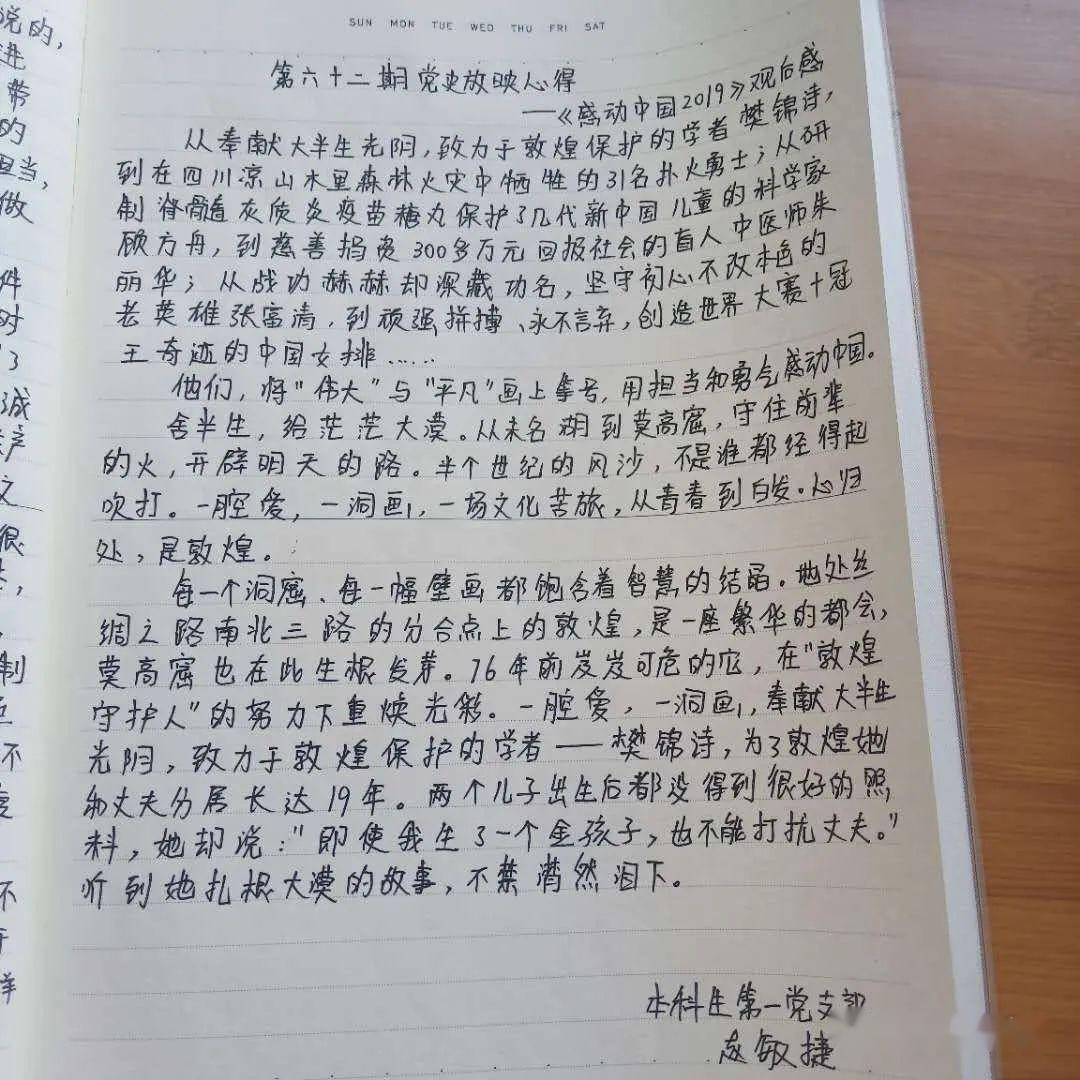 SUN MON TUE WED THU FRI SAT
第六十二期党史放映心得
——《感动中国2019》观后感
从奉献大半生光阴,致力于敦煌保护的学者樊锦诗,
到在四川凉山木里森林火灾中牺牲的31名扑火勇士;从研
制脊髓灰质炎疫苗糖丸保护了几代新中国儿童的科学家
顾方舟,到慈善捐资300多万元回报社会的盲人中医师朱
丽华;从战功赫赫却深藏功名,坚守初心不改本色的
老英雄张富清,到顽强拼搏、永不言弃,创造世界大赛十冠
王奇迹的中国女排……
他们,将“伟大”与“平凡”画上等号,用担当和勇气感动中国。
舍半生,给茫茫大漠。从未名湖到莫高窟,守住前辈
的火,开辟明天的路。半个世纪的风沙,不是谁都经得起
吹打。一腔爱,一洞画,一场文化苦旅,从青春到白发。心归
处,是敦煌。
每一个洞窟、每一幅壁画都饱含着智慧的结晶。地处丝
绸之路南北三路的分合点上的敦煌,是一座繁华的都会,
莫高窟也在此生根发芽。76年前岌岌可危的它,在“敦煌
守护人”的努力下重焕光彩。一腔爱,一洞画,奉献大半生
光阴,致力于敦煌保护的学者——樊锦诗,为了敦煌她
和丈夫分居长达19年。两个儿子出生后都没得到很好的照
料,她却说:“即使我生了一个金孩子,也不能打扰丈夫。”
听到她扎根大漠的故事,不禁潸然泪下。
本科生第一党支部
敏捷
说的,
进
带
的
担当,
做
件
时
了
诚
产
文
很
制
不
度
不
开
样